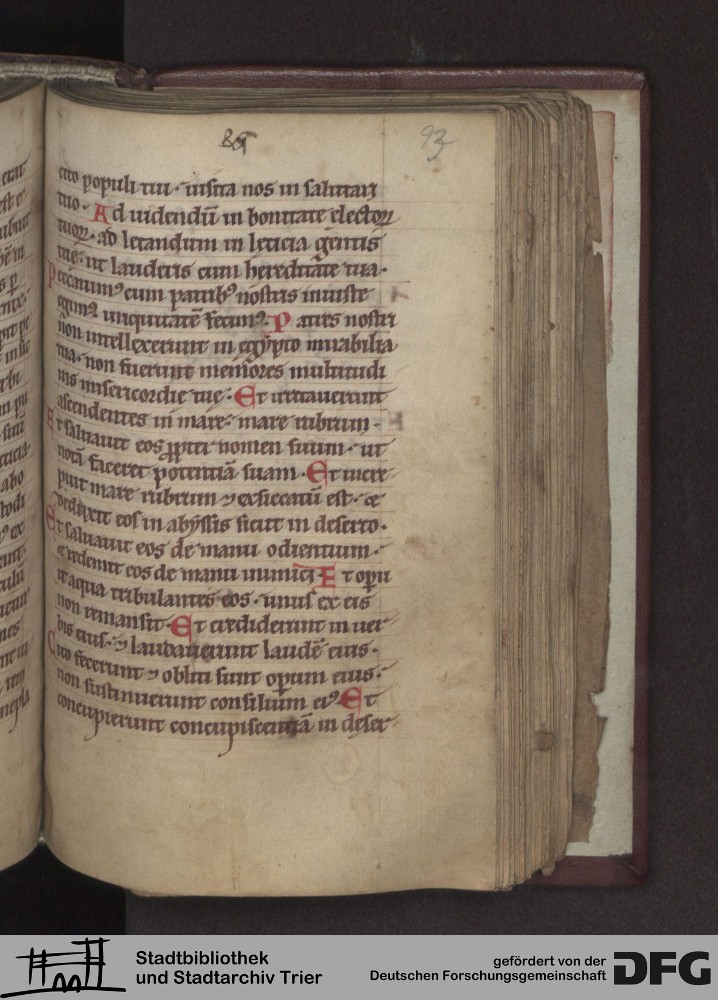 93
cito populi tui · uisita nos in salutari
tuo · Ad uidendū in bonitate electoꝝ
tuoꝝ · ad letandum in leticia gentis
tue · ut lauderis cum hereditate tua ·
Peccauim᷒ cum patrib᷒ nostris iniuste
egim᷒ iniquitatē fecim᷒ · Patres nostri
non intellexerunt in egypto mirabilia
tua · non fuerunt memores multitudi
nis misericordie tue · Et irritauerunt
ascendentes in mare · mare rubrum ·
Et saluauit eos ꝓpter nomen suum · ut
notā faceret potentiā suam · Et incre
puit mare rubrum ⁊ exsiccatū est · ⁊
deduxit eos in abyssis sicut in deserto ·
Et saluauit eos de manu odientium ·
⁊ redemit eos de manu inimici Et opu
it aqua tribulantes eos · unus ex eis
non remansit · Et crediderunt in uer
bis eius · ⁊ laudauerunt laudē eius ·
Cito fecerunt ⁊ obliti sunt operum eius ·
non sustinuerunt consilium ei᷒ · Et
concupierunt concupiscentiā in deser
Stadtbibliothek
und Stadtarchiv Trier
gefördert von der
Deutschen Forschungsgemeinschaft
DFG